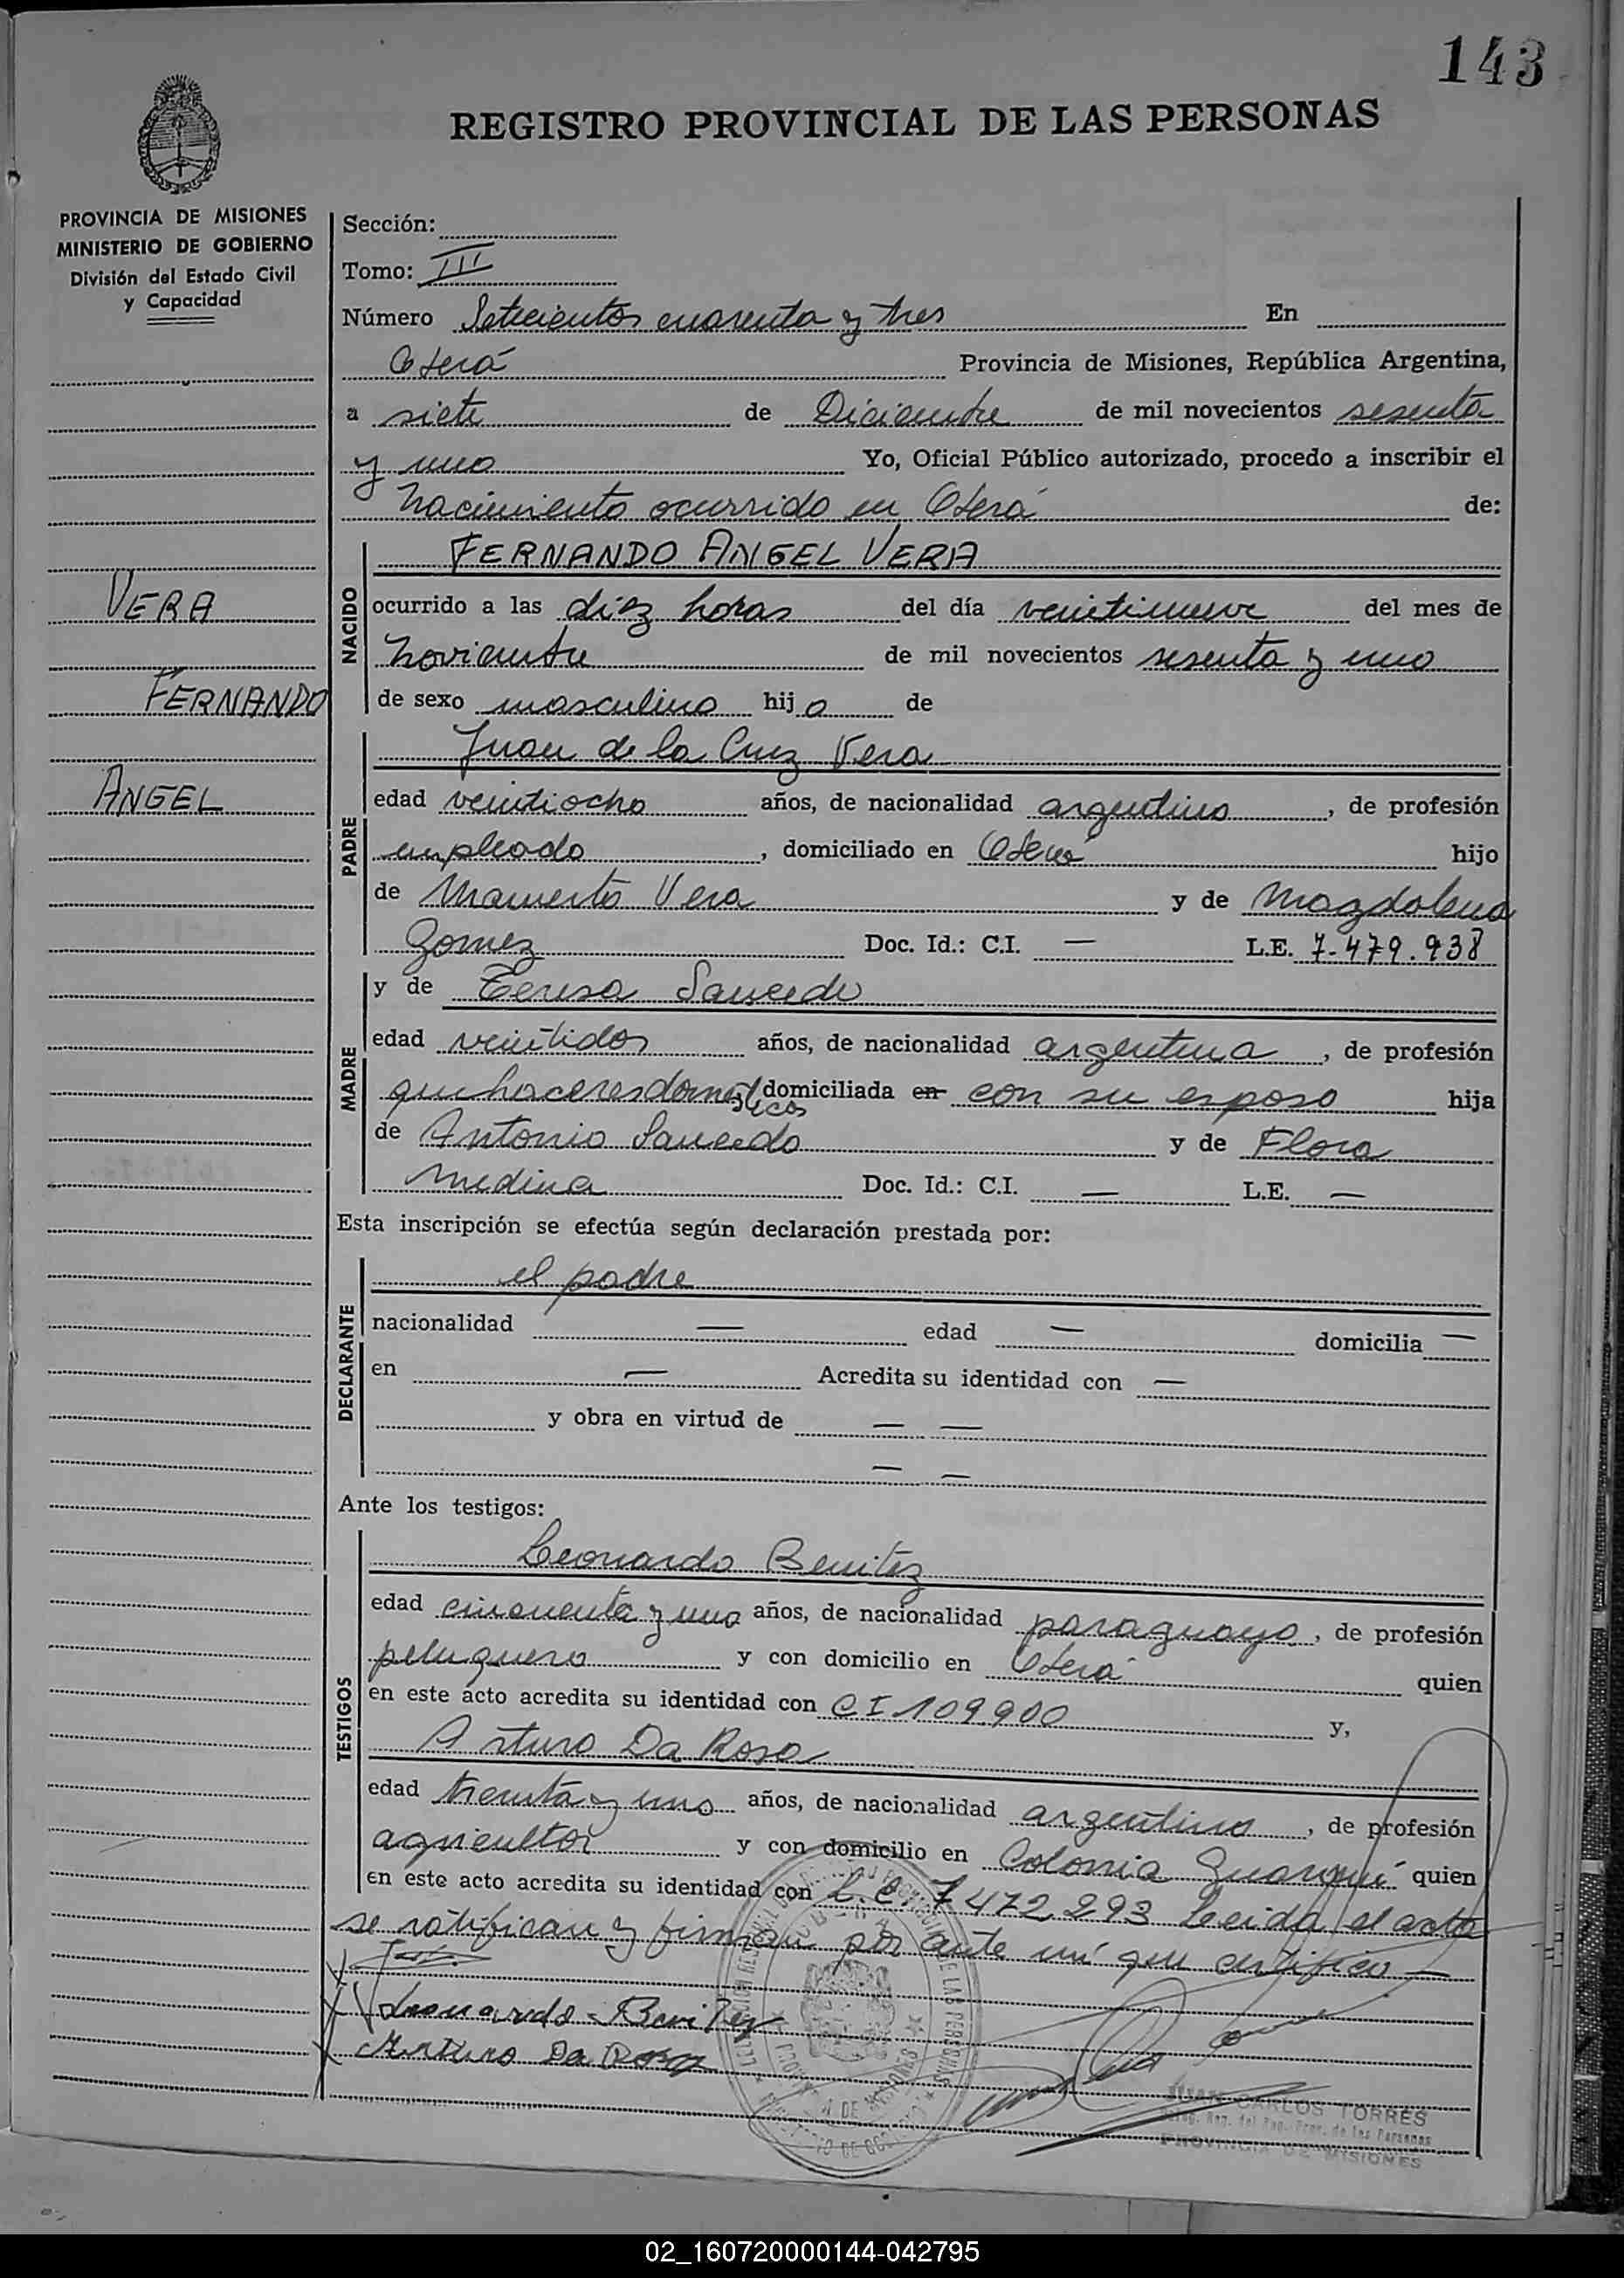 143
REGISTRO PROVINCIAL DE LAS PERSONAS
PROVINCIA DE MISIONES
MINISTERIO DE GOBIERNO
División del Estado Civil
y Capacidad
VERA
FERNANDO
ANGEL
Sección:
Tomo: III
Número Setecientos cuarenta y tres En
Oberá Provincia de Misiones, República Argentina,
a siete de Diciembre de mil novecientos sesenta
y uno Yo, Oficial Público autorizado, procedo a inscribir el
nacimiento ocurrido en Oberá de:
NACIDO
FERNANDO ANGEL VERA
ocurrido a las diez horas del día veintinueve del mes de
noviembre de mil novecientos sesenta y uno
de sexo masculino hijo de
PADRE
Juan de la Cruz Vera
edad veintiocho años, de nacionalidad argentino, de profesión
empleado, domiciliado en Oberá hijo
de Mamerto Vera y de Magdalena
Gomez Doc. Id.: C.I. — L.E. 7.479.938
MADRE
y de Teresa Saucedo
edad veintidos años, de nacionalidad argentina, de profesión
quehaceres domésticos domiciliada en con su esposo hija
de Antonio Saucedo y de Flora
Medina Doc. Id.: C.I. — L.E. —
Esta inscripción se efectúa según declaración prestada por:
DECLARANTE
el padre
nacionalidad — edad — domicilia —
en — Acredita su identidad con —
y obra en virtud de — —
— —
Ante los testigos:
TESTIGOS
Leonardo Benitez
edad cincuenta y uno años, de nacionalidad paraguayo, de profesión
peluquero y con domicilio en Oberá quien
en este acto acredita su identidad con CI 109900 y,
Arturo Da Rosa
edad treinta y uno años, de nacionalidad argentino, de profesión
agricultor y con domicilio en Colonia quien
en este acto acredita su identidad con L.E. 7472293 Leida el acta
se ratifican y firman por ante mí que certifico —
Leonardo Benitez
Arturo Da Rosa
JUAN CARLOS TORRES
PROVINCIA DE MISIONES
02_160720000144-042795